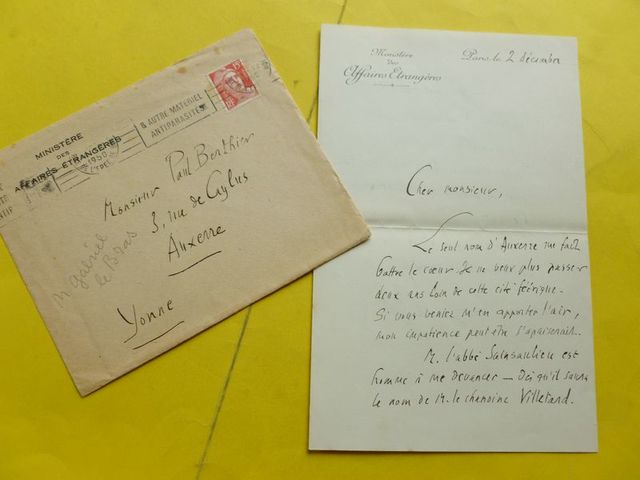 MINISTÈRE
DES
AFFAIRES ÉTRANGÈRES
1950
& AUTRE MATERIEL
ANTIPARASITE
Monsieur Paul Berthier
3, rue de Caylus
Auxerre
Yonne
Gabriel
le Bras
Ministère
des
Affaires Etrangères
Paris, le 2 décembre
Cher monsieur,
Le seul nom d'Auxerre me fait
battre le cœur. Je ne veux plus passer
deux ans loin de cette cité féérique.
Si vous veniez m'en apporter l'air,
mon impatience peut être s'apaiserait.
M. l'abbé Sainsaulieu est
homme à me devancer — Dès qu'il saura
le nom de M. le chanoine Villetard.